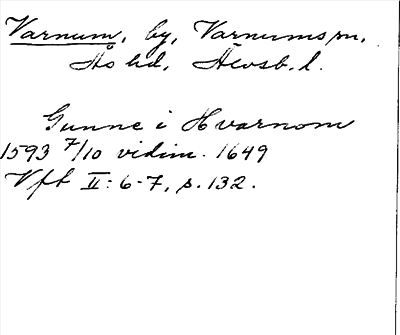 Varnum, by, Varnums sn,
Ås hd, Älvsb. l.
Gunne i Hvarnom
1593 7/10 vidim. 1649
Vft II: 6-7, s. 132.